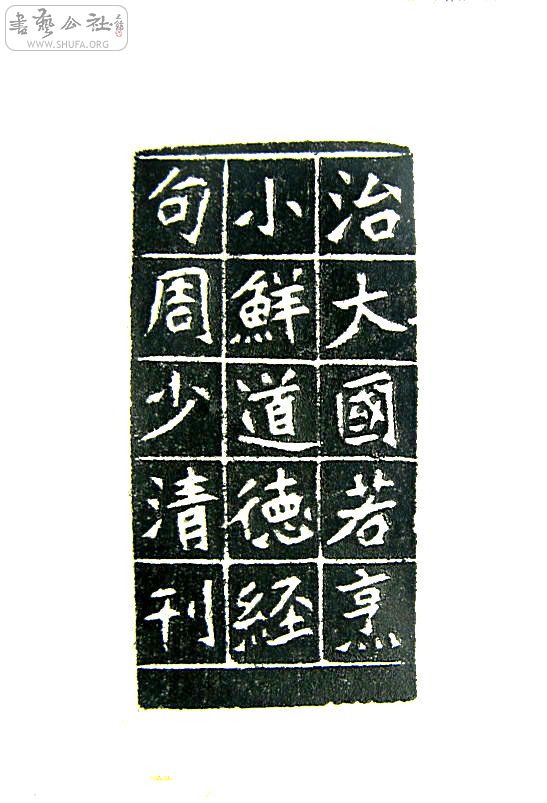 書藝公社
WWW.SHUFA.ORG
治大國若烹
小鮮道德經
句周少清刊